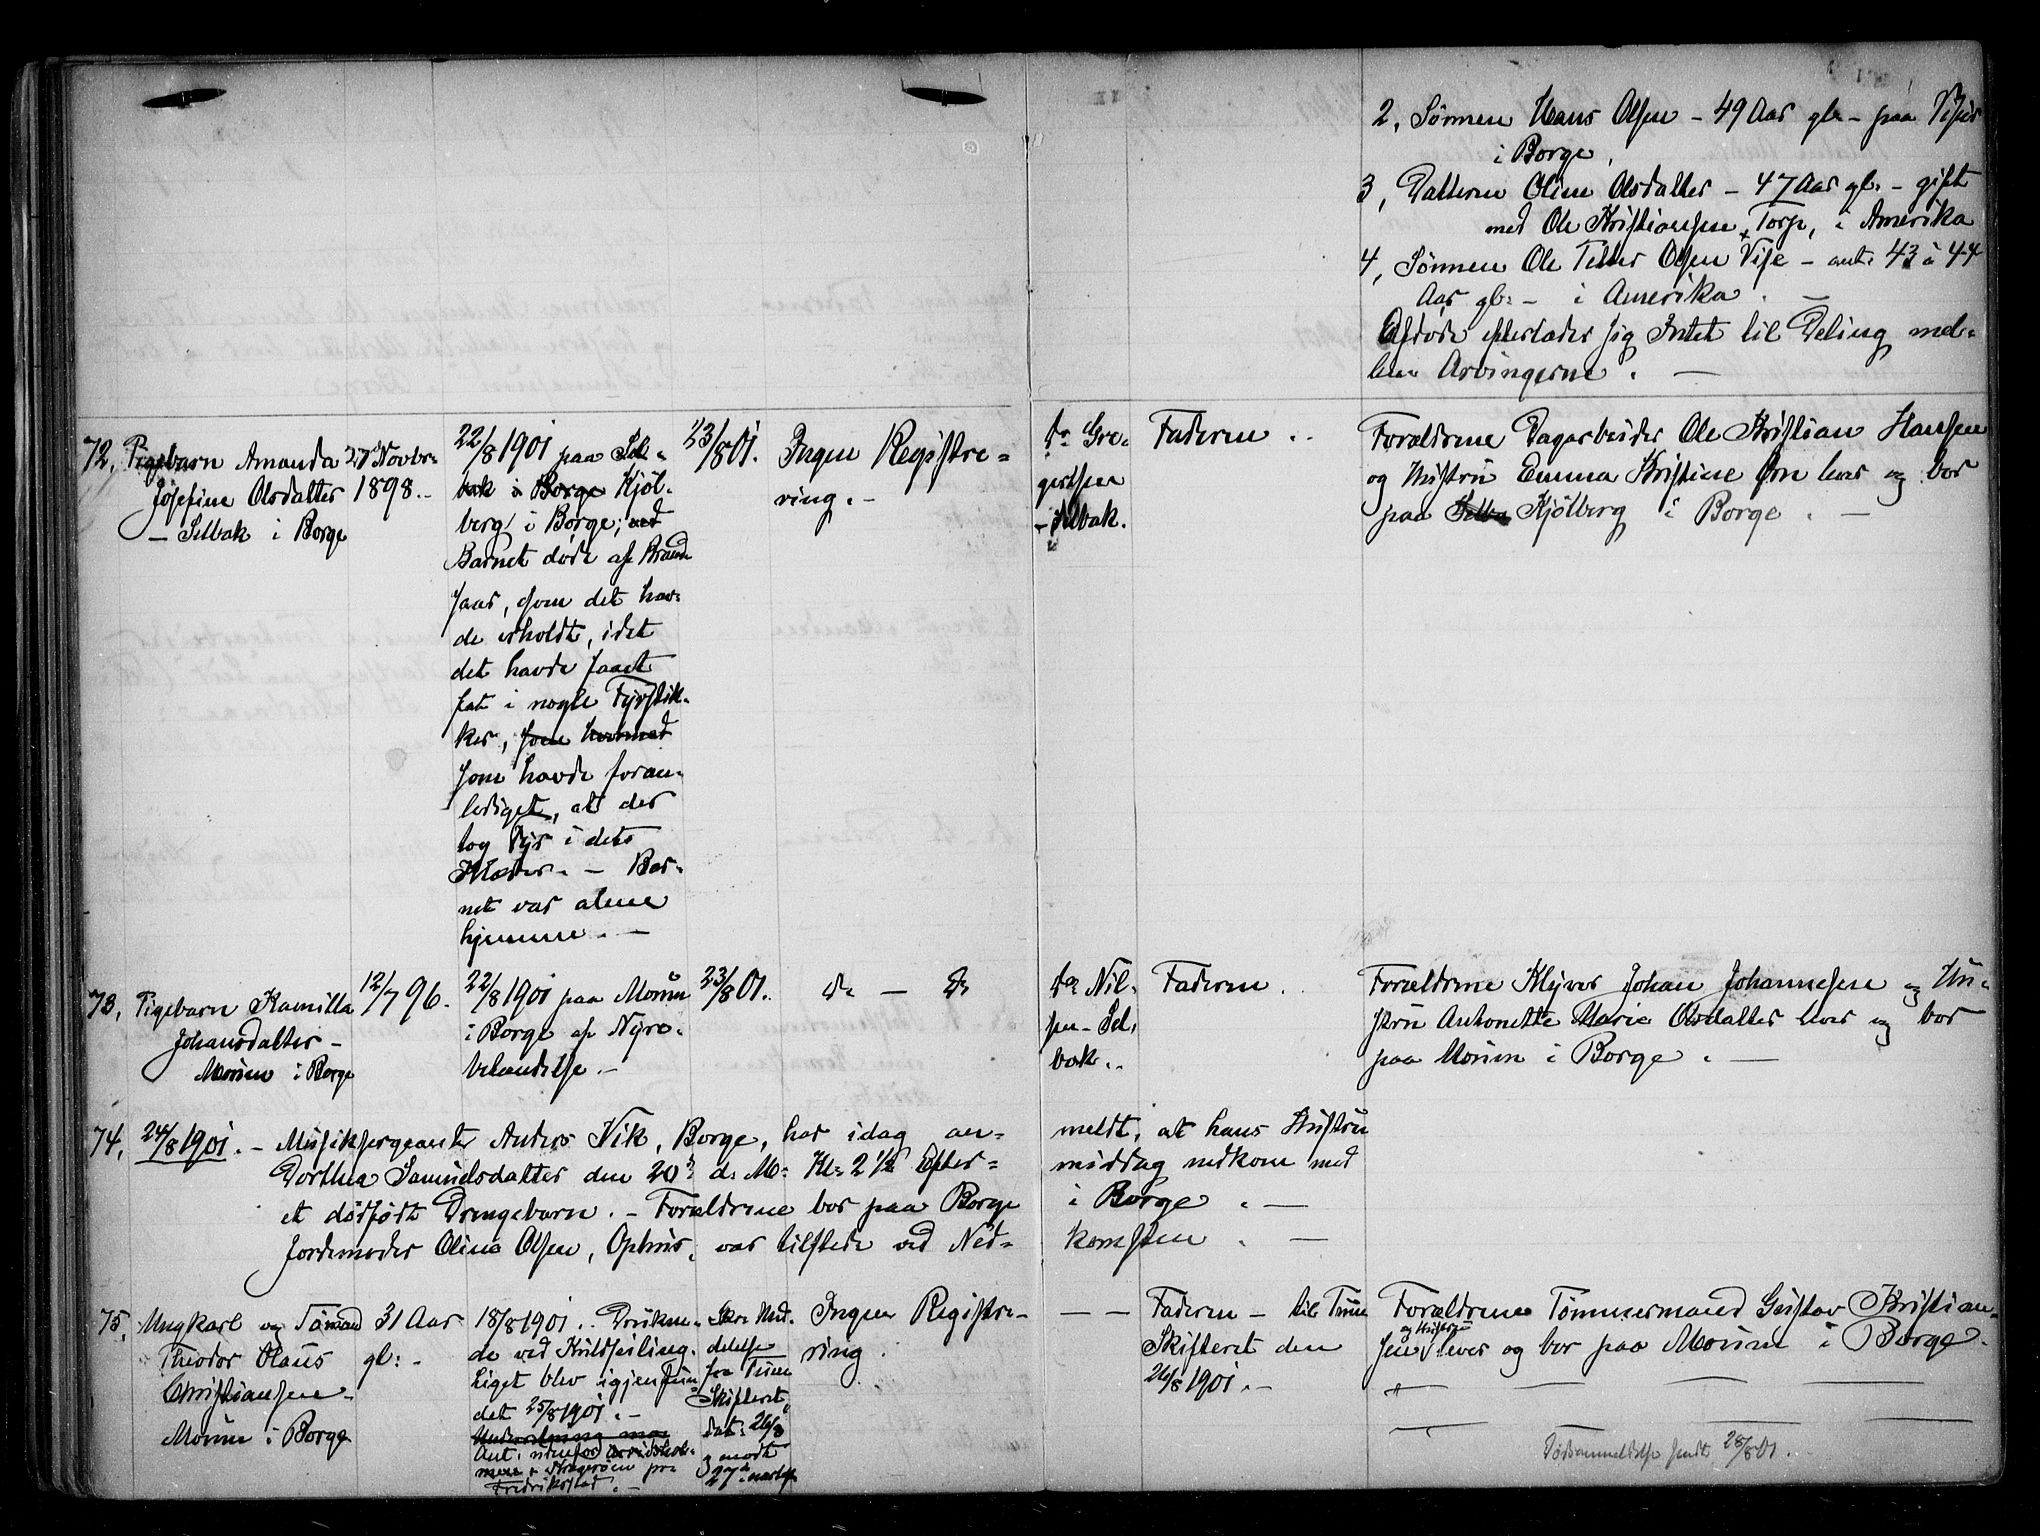 2, Sönnen Hans Olsen - 49 Aar gl: - paa Viser
i Borge.
3, Datteren Oline Olsdatter - 47 Aar gl: - gift
med Ole Kristiansen, Torp, i Amerika
4, Sönnen Ole Olsen Vise - ant: 43 à 44
Aar gl: - i Amerika. -
Afdöde efterlader sig Intet til Deling mel=
lem Arvingerne. -
72, Pigebarn Amanda
Josefine Olsdatter
- Selbak i Borge
27 Novbr:
1898. -
22/8 1901 paa Sel=
bak i Borge Kjöl=
berg i Borge; ved
Barnet døde af Brand
saar, som det hav=
de erholdt, idet
det havde faaet
fat i nogle Fyrstik=
ker, som hvormed
som havde foran=
lediget, at der
tog Fyr i dets
Klæder. - Bar=
net var alene
hjemme. -
23/8 01.
Ingen Registre=
ring. -
do Gre=
gersen
- Selbak.
Faderen. .
Forældrene Dagarbeider Ole Kristian Hansen
og Hustru Emma Kristine Örn lever og bor
paa Selba Kjölberg i Borge. -
73, Pigebarn Kamilla
Johansdatter -
Moum i Borge
12/7 96.
22/8 1901 paa Moum
i Borge af Nyre=
betændelse. -
23/8 01.
do - do
do Nil=
sen - Sel=
bak. .
Faderen.
Forældrene Skyver Johan Johannesen og Hu=
stru Antonette Marie Olsdatter lever og bor
paa Moum i Borge. -
74, 24/8 1901. - Musiksergeanter Anders Vik, Borge, har idag an=
meldt, at hans Hustru
Dorthea Samuelsdatter den 20de d: M: Kl: 2 1/2 Efter=
middag nedkom med
et dödfödt Drengebarn. - Forældrene bor paa Borge
i Borge. -
Jordemoder Olina Olsen, Ophus, var tilstede ved Ned=
komsten. -
75, Ungkarl og Sömand
Theodor Olaus
Christiansen -
Moum i Borge
31 Aar
gl: -
18/8 1901. . Drukne=
de ved Kuldseiling.
Liget blev igjenfun=
det 25/8 1901. -
Ant: udenfor
Kragerøen pr
Fredrikstad. -
Skr: Med=
delelse
fra Tune
Skifteret
dat: 26/8
modt
27de næstef.
Ingen Registre=
ring.
- -
Faderen - til Tune
Skifteret den
26/8 1901. -
Forældrene Tömmermand Gustav Kristian=
sen og Hustru lever og bor paa Moum i Borge.
Dödsanmeldelse sendt 28/8 01.